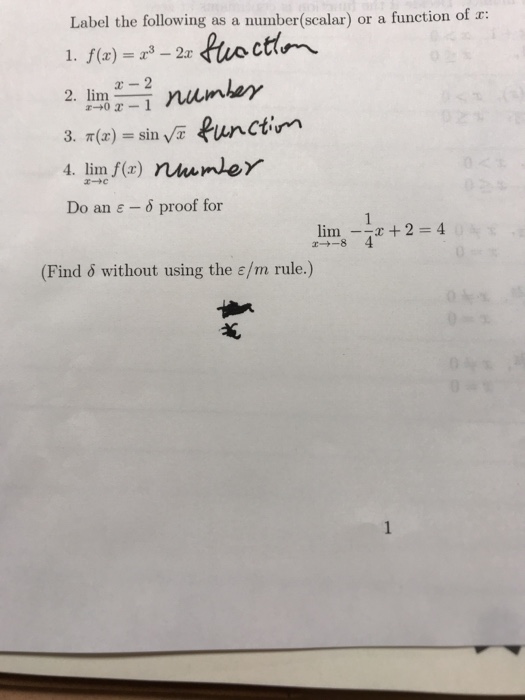 Label the following as a number(scalar) or a function of x:
1. f(x) = x³ − 2x function
2. lim x→0 (x − 2)/(x − 1) number
3. π(x) = sin √x function
4. lim x→c f(x) number
Do an ε − δ proof for
lim x→−8 −1/4 x + 2 = 4
(Find δ without using the ε/m rule.)
1